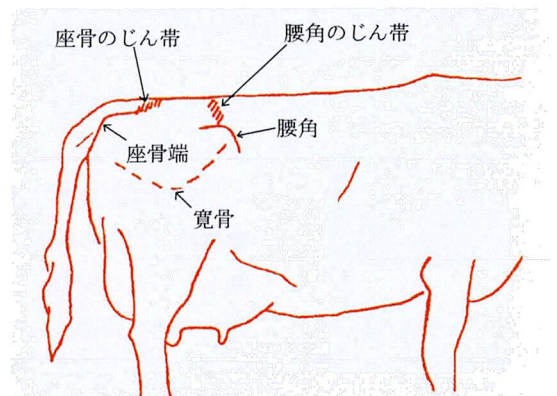 座骨のじん帯
腰角のじん帯
腰角
座骨端
寛骨